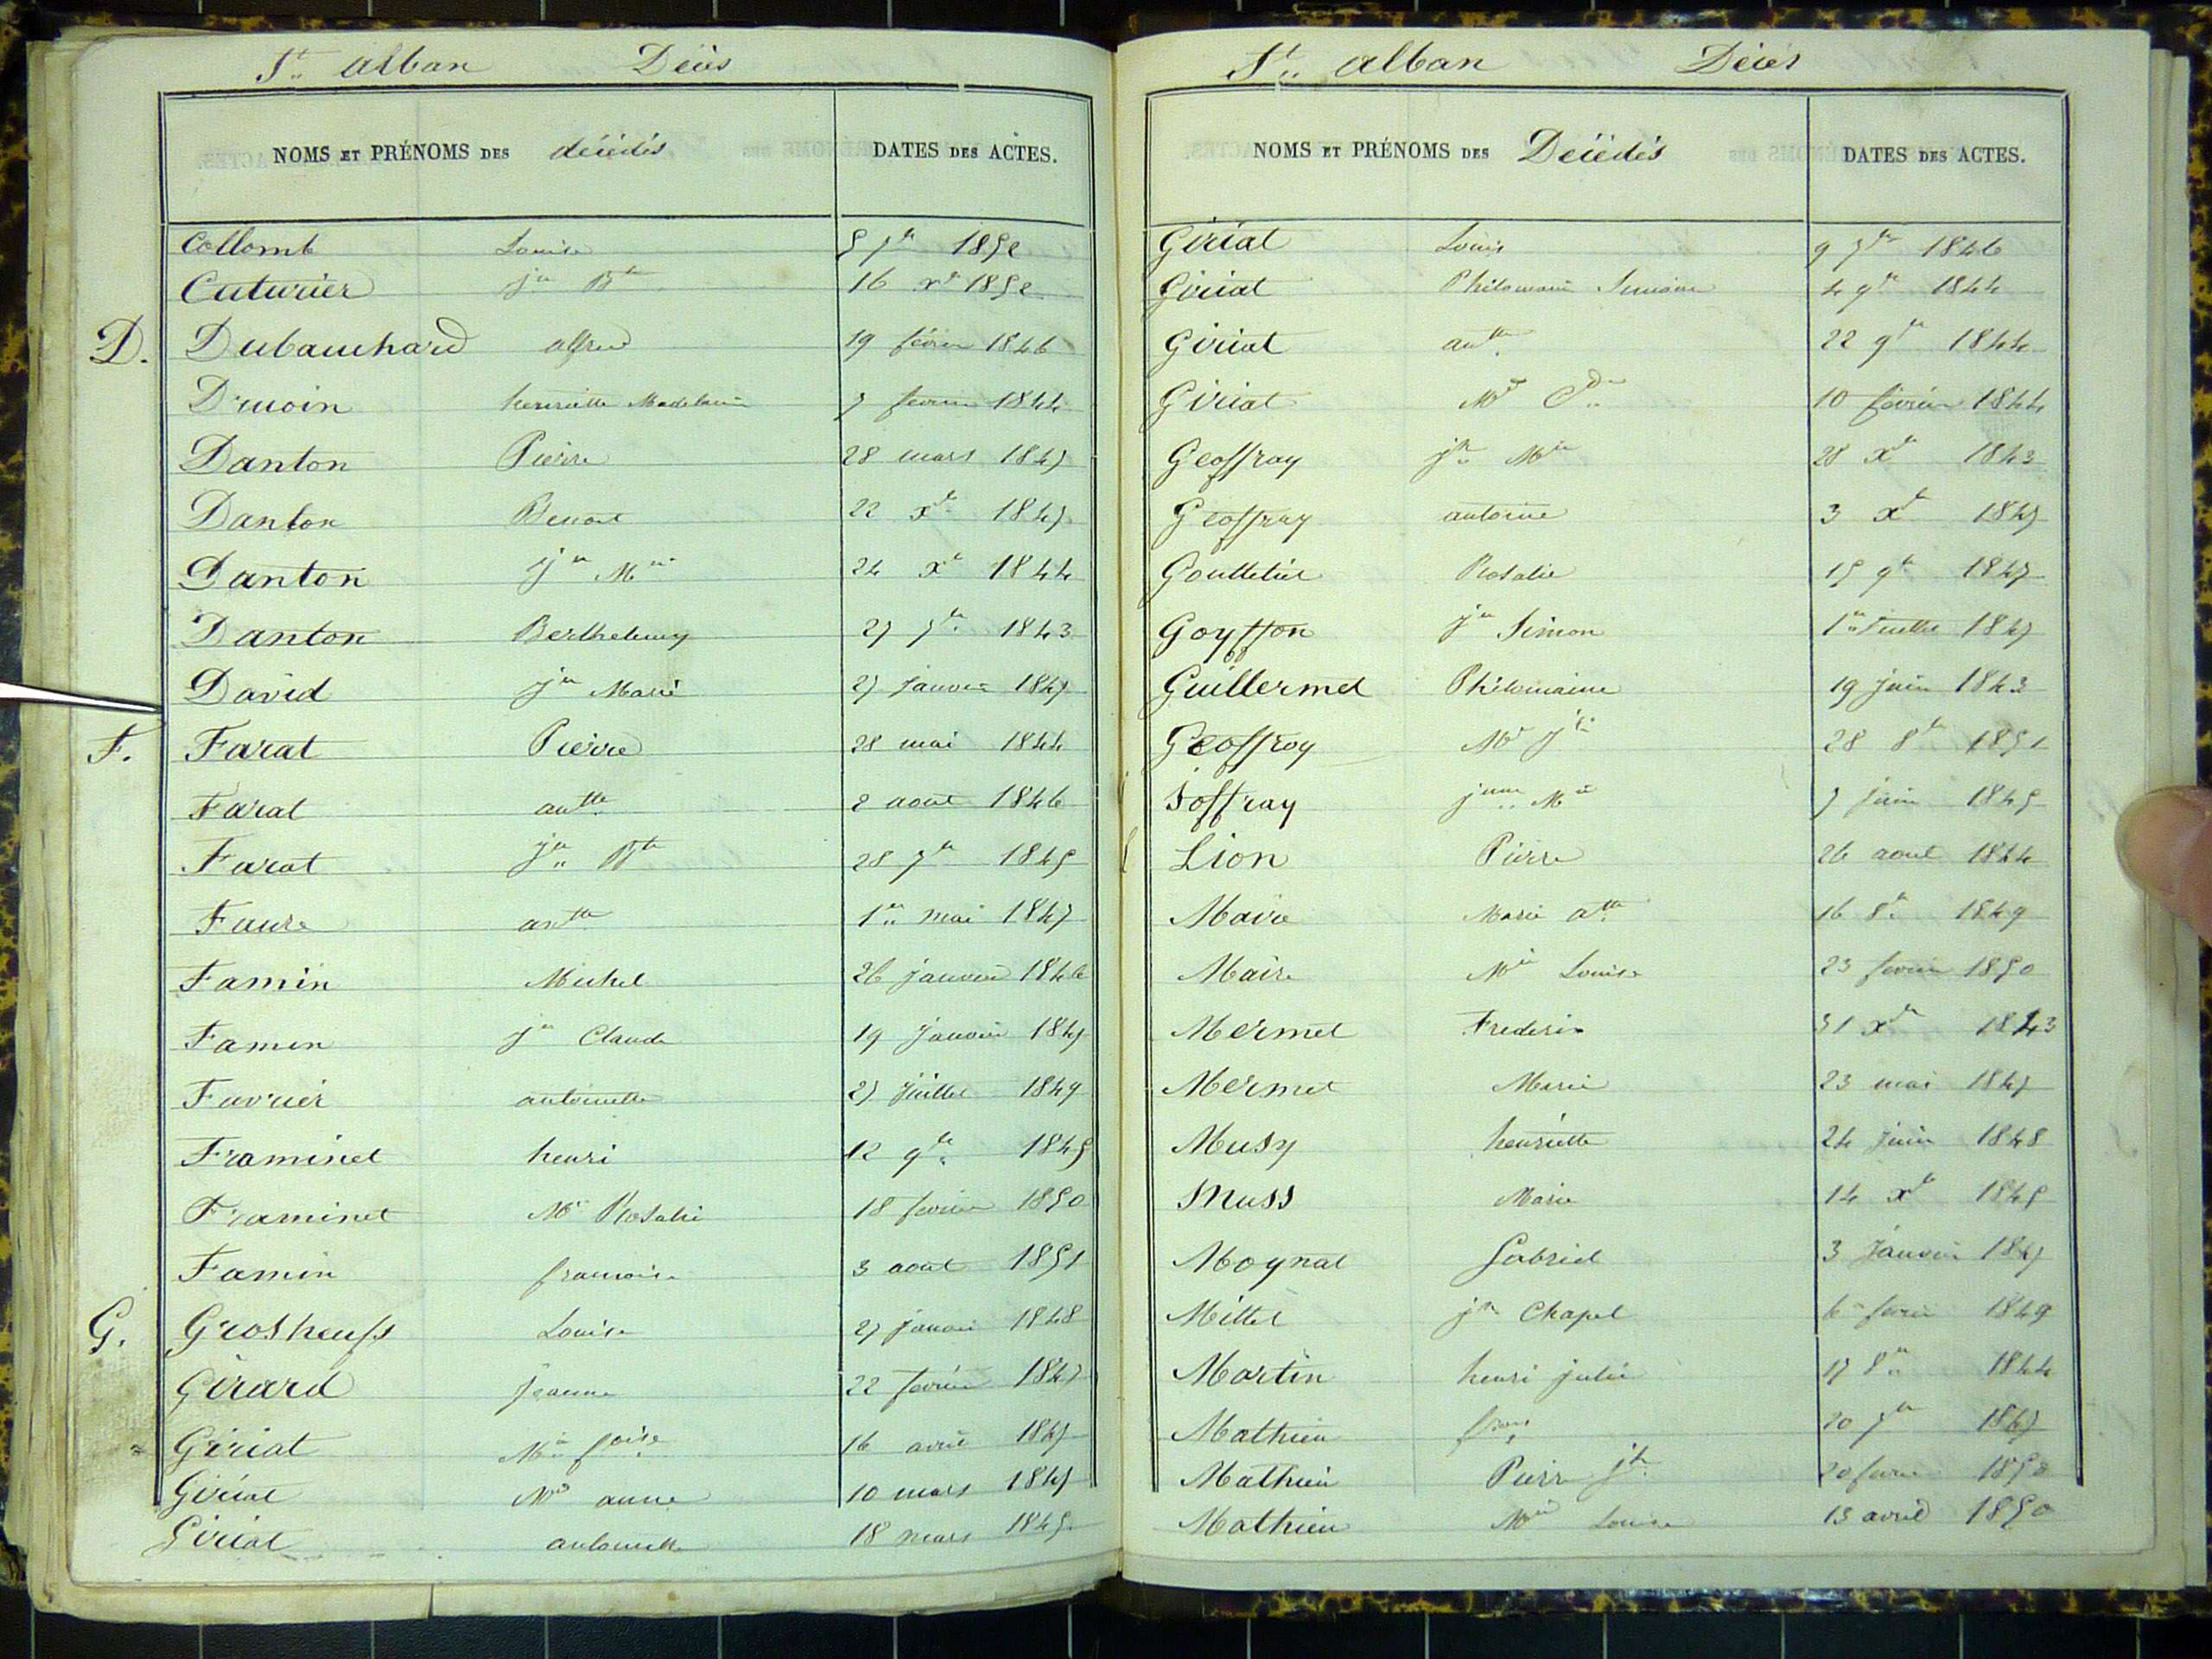 St. alban Décès
NOMS ET PRÉNOMS DES décédés DATES DES ACTES.
Collomb Louise 5 7bre 1852
Cuturier jn Bte 16 xbre 1852
D. Dubauchard alfred 19 février 1846
Druoin henriette Madeleine 7 février 1844
Danton Pierre 28 mars 1847
Danton Benoit 22 xbre 1847
Danton jn Mrie 24 xbre 1844
Danton Berthelemy 27 7bre 1843
David jn Marie 27 janvier 1847
F. Farat Pierre 28 mai 1844
Farat antte 2 aout 1846
Farat jn Bte 28 7bre 1845
Faure antte 1er mai 1847
Famin Michel 26 janvier 1846
Famin jn Claude 19 janvier 1847
Favrier antoinette 27 juillet 1849
Framinet henri 12 9bre 1845
Framinet Mie Rosalie 18 février 1850
Famin francoise 3 aout 1851
G. Grosheuss Louise 27 janvier 1848
Girard jeanne 22 février 1847
Giriat Mie foise 16 avril 1847
Giriat Mie anne 10 mars 1847
Giriat antoinette 18 mars 1845
St. alban Décès
NOMS ET PRÉNOMS DES Décédés DATES DES ACTES.
Giriat Louis 9 7bre 1846
Giriat Philomène 4 9bre 1844
Giriat antte 22 9bre 1844
Giriat 10 février 1844
Geoffray jn Mie 28 xbre 1843
Geoffray antoine 3 xbre 1847
Gouttetier Rosalie 15 9bre 1847
Goyffon jn Simon 1er Juillet 1847
Guillermet Philomaine 19 juin 1843
Geoffroy Mie 28 8bre 1851
Joffray jnne Mie 7 juin 1845
Lion Pierre 26 aout 1844
Maire Marie atte 16 8bre 1849
Maire Mie Louise 23 février 1850
Mermet Frederic 31 xbre 1843
Mermet Marie 23 mai 1847
Musy henriette 24 juin 1848
Muss Marie 14 xbre 1845
Moynat Gabriel 3 Janvier 1847
Millet jn Chapel 6 février 1849
Martin henri julie 17 8bre 1844
Mathieu fois 20 7bre 1847
Mathieu Pierre jh 20 février 1850
Mathieu Mie Louise 13 avril 1850